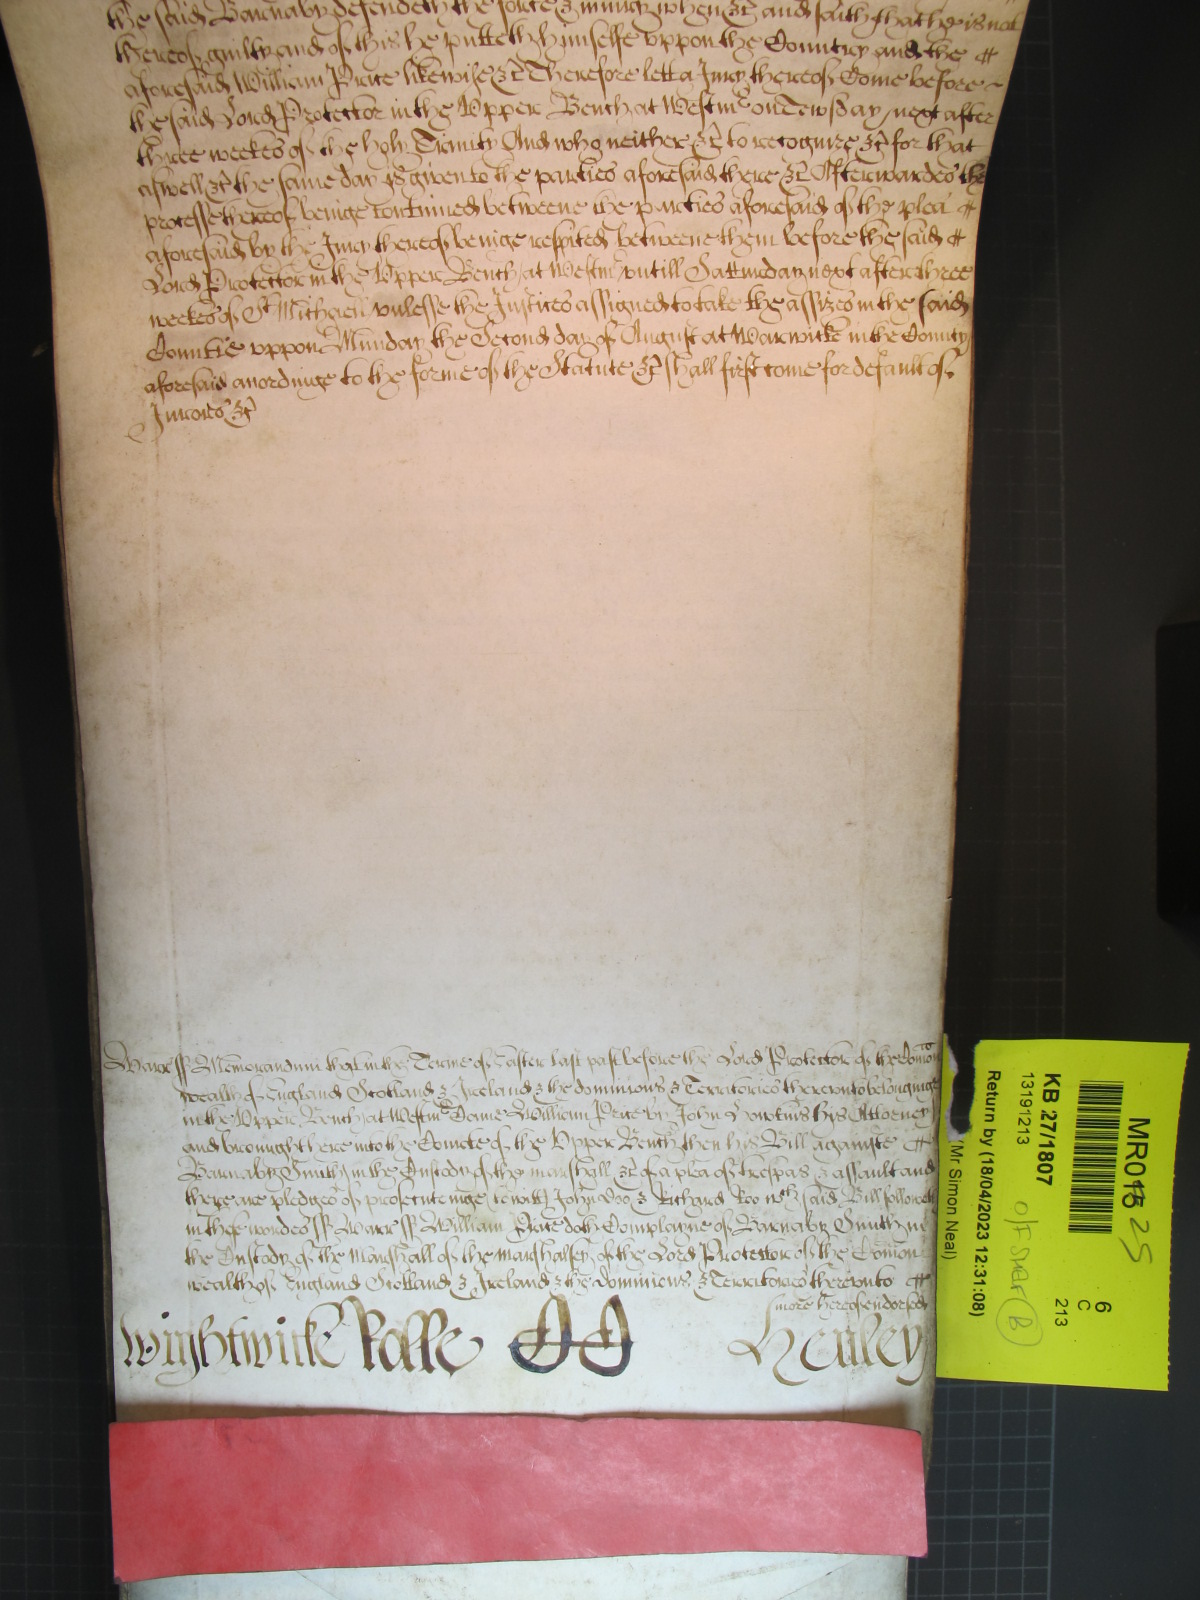 the said Barnaby defendeth the force & iniury when &c and saith that he is not
thereof guilty and of this he putteth himselfe vppon the Country and the
aforesaid William Prite likewise &c Therefore lett a Jury thereof Come before
the said Lord Protector in the Vpper Bench at Westmr on Tewsday next after
three weekes of the holy Trinity And who neither &c to recognize &c for that
aswell &c the same day is given to the parties aforesaid there &c Afterwardes the
processe thereof beinge continued betweene the parties aforesaid of the plea
aforesaid by the Jury thereof beinge respited betweene them before the said
Lord Protector in the Vpper Bench at Westmr vntill Satturday next after three
weekes of St Michael vnlesse the Justices assigned to take the assizes in the said
Countie vppon Munday the Second day of August at Warwicke in the County
aforesaid accordinge to the forme of the Statute &c shall first come for default of
Jurors &c
Warr ss Memorandum that in the Terme of Easter last past before the Lord Protector of the Comon
wealth of England Scotland & Ireland & the dominions & Territories therevnto belonginge
in the Vpper Bench at Westmr Came William Prite by John Hawkins his Attorney
and brought here into the Courte of the Vpper Bench then his Bill againste
Barnaby Smith in the Custody of the marshall &c of a plea of trespas & assault and
there are pledges of prosecutinge to witt John doo & Richard Roo wch said Bill followeth
in these wordes ss Warr ss William Prite doth Complayne of Barnaby Smith in
the Custody of the Marshall of the Marshalsey of the Lord Protector of the Comon
wealth of England Scotland & Ireland & the dominions & Territories therevnto
more hereof endorsed
Wightwick Rolle
Henley
MR016 25
KB 27/1807
13191213
6
C
213
O/F Shelf B
Return by (18/04/2023 12:31:08)
(Mr Simon Neal)